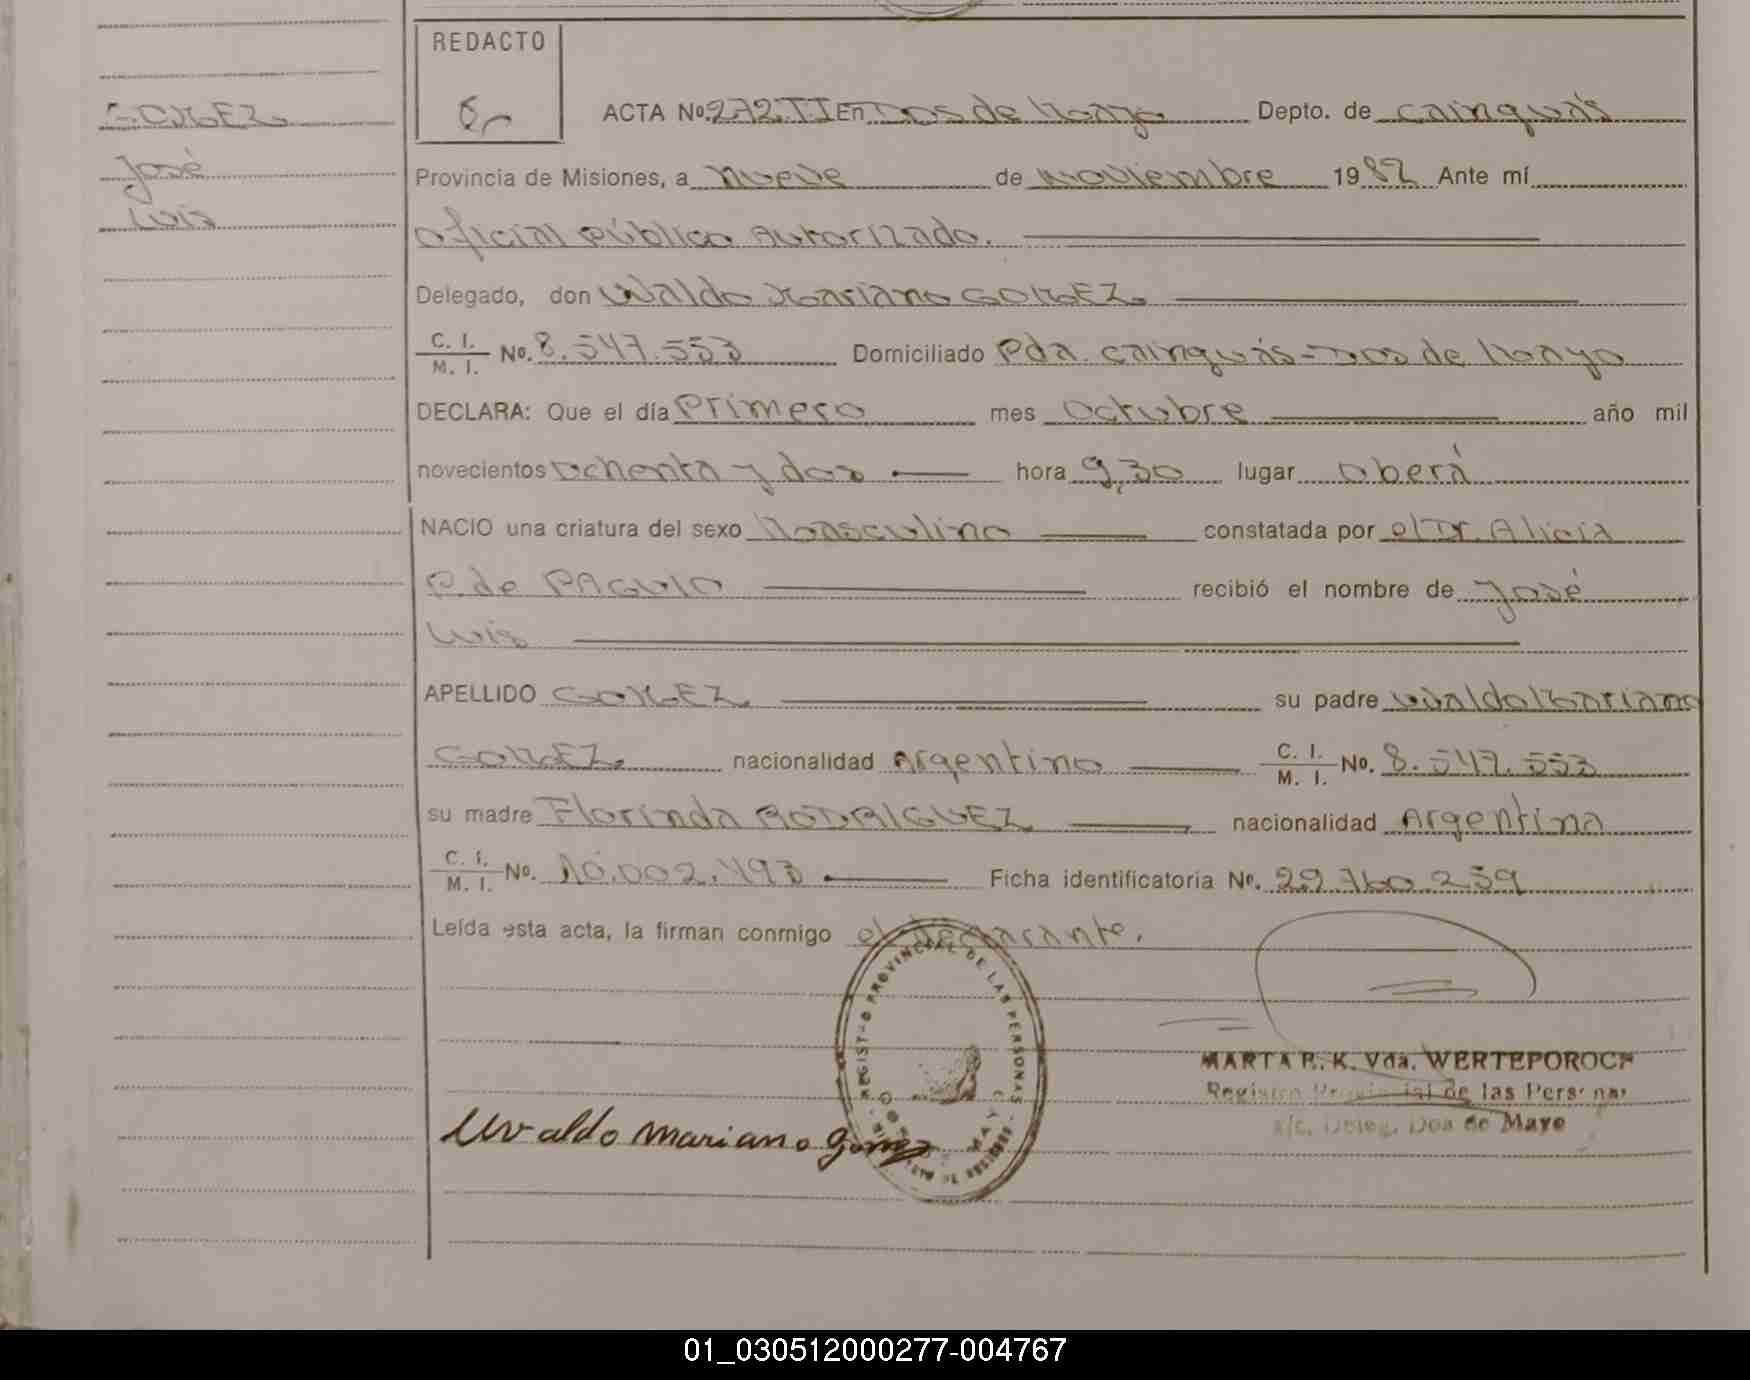 GOMEZ
José
Luis
REDACTO
ACTA No. 272.TI En Dos de Mayo Depto. de Cainguás
Provincia de Misiones, a nueve de noviembre 1982 Ante mí
oficial público Autorizado.
Delegado, don Uvaldo Mariano GOMEZ.
C. I. / M. I. No. 8.547.553 Domiciliado Pda. Cainguás-Dos de Mayo
DECLARA: Que el día Primero mes Octubre año mil
novecientos ochenta y dos hora 9,30 lugar Oberá
NACIO una criatura del sexo Masculino constatada por el Dr. Alicia
P. de PAGULO recibió el nombre de José
Luis
APELLIDO GOMEZ su padre Uvaldo Mariano
GOMEZ. nacionalidad Argentino C. I. / M. I. No. 8.547.553
su madre Florinda RODRIGUEZ nacionalidad Argentina
C. I. / M. I. No. 10.002.493 Ficha identificatoria No. 29.760.259
Leída esta acta, la firman conmigo el declarante.
REGISTRO PROVINCIAL DE LAS PERSONAS
MARTA R. K. Vda. WERTEPOROCH
Registro Provincial de las Personas
a/c. Deleg. Dos de Mayo
Uvaldo Mariano Gómez
01_030512000277-004767